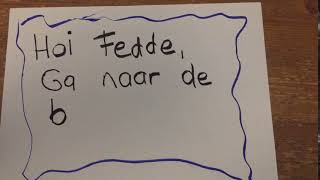 Hoi Fedde,
Ga naar de
b